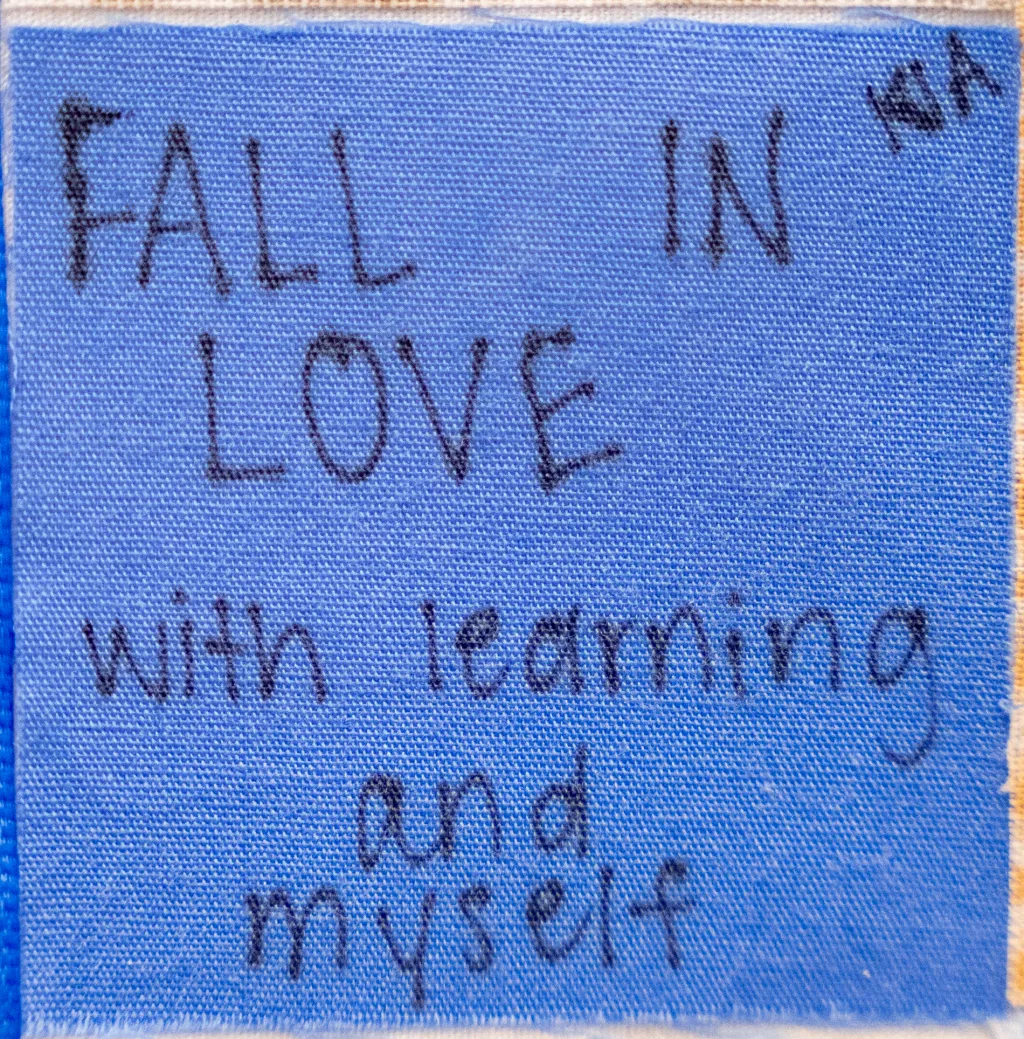 FALL IN
LOVE
with learning
and
myself